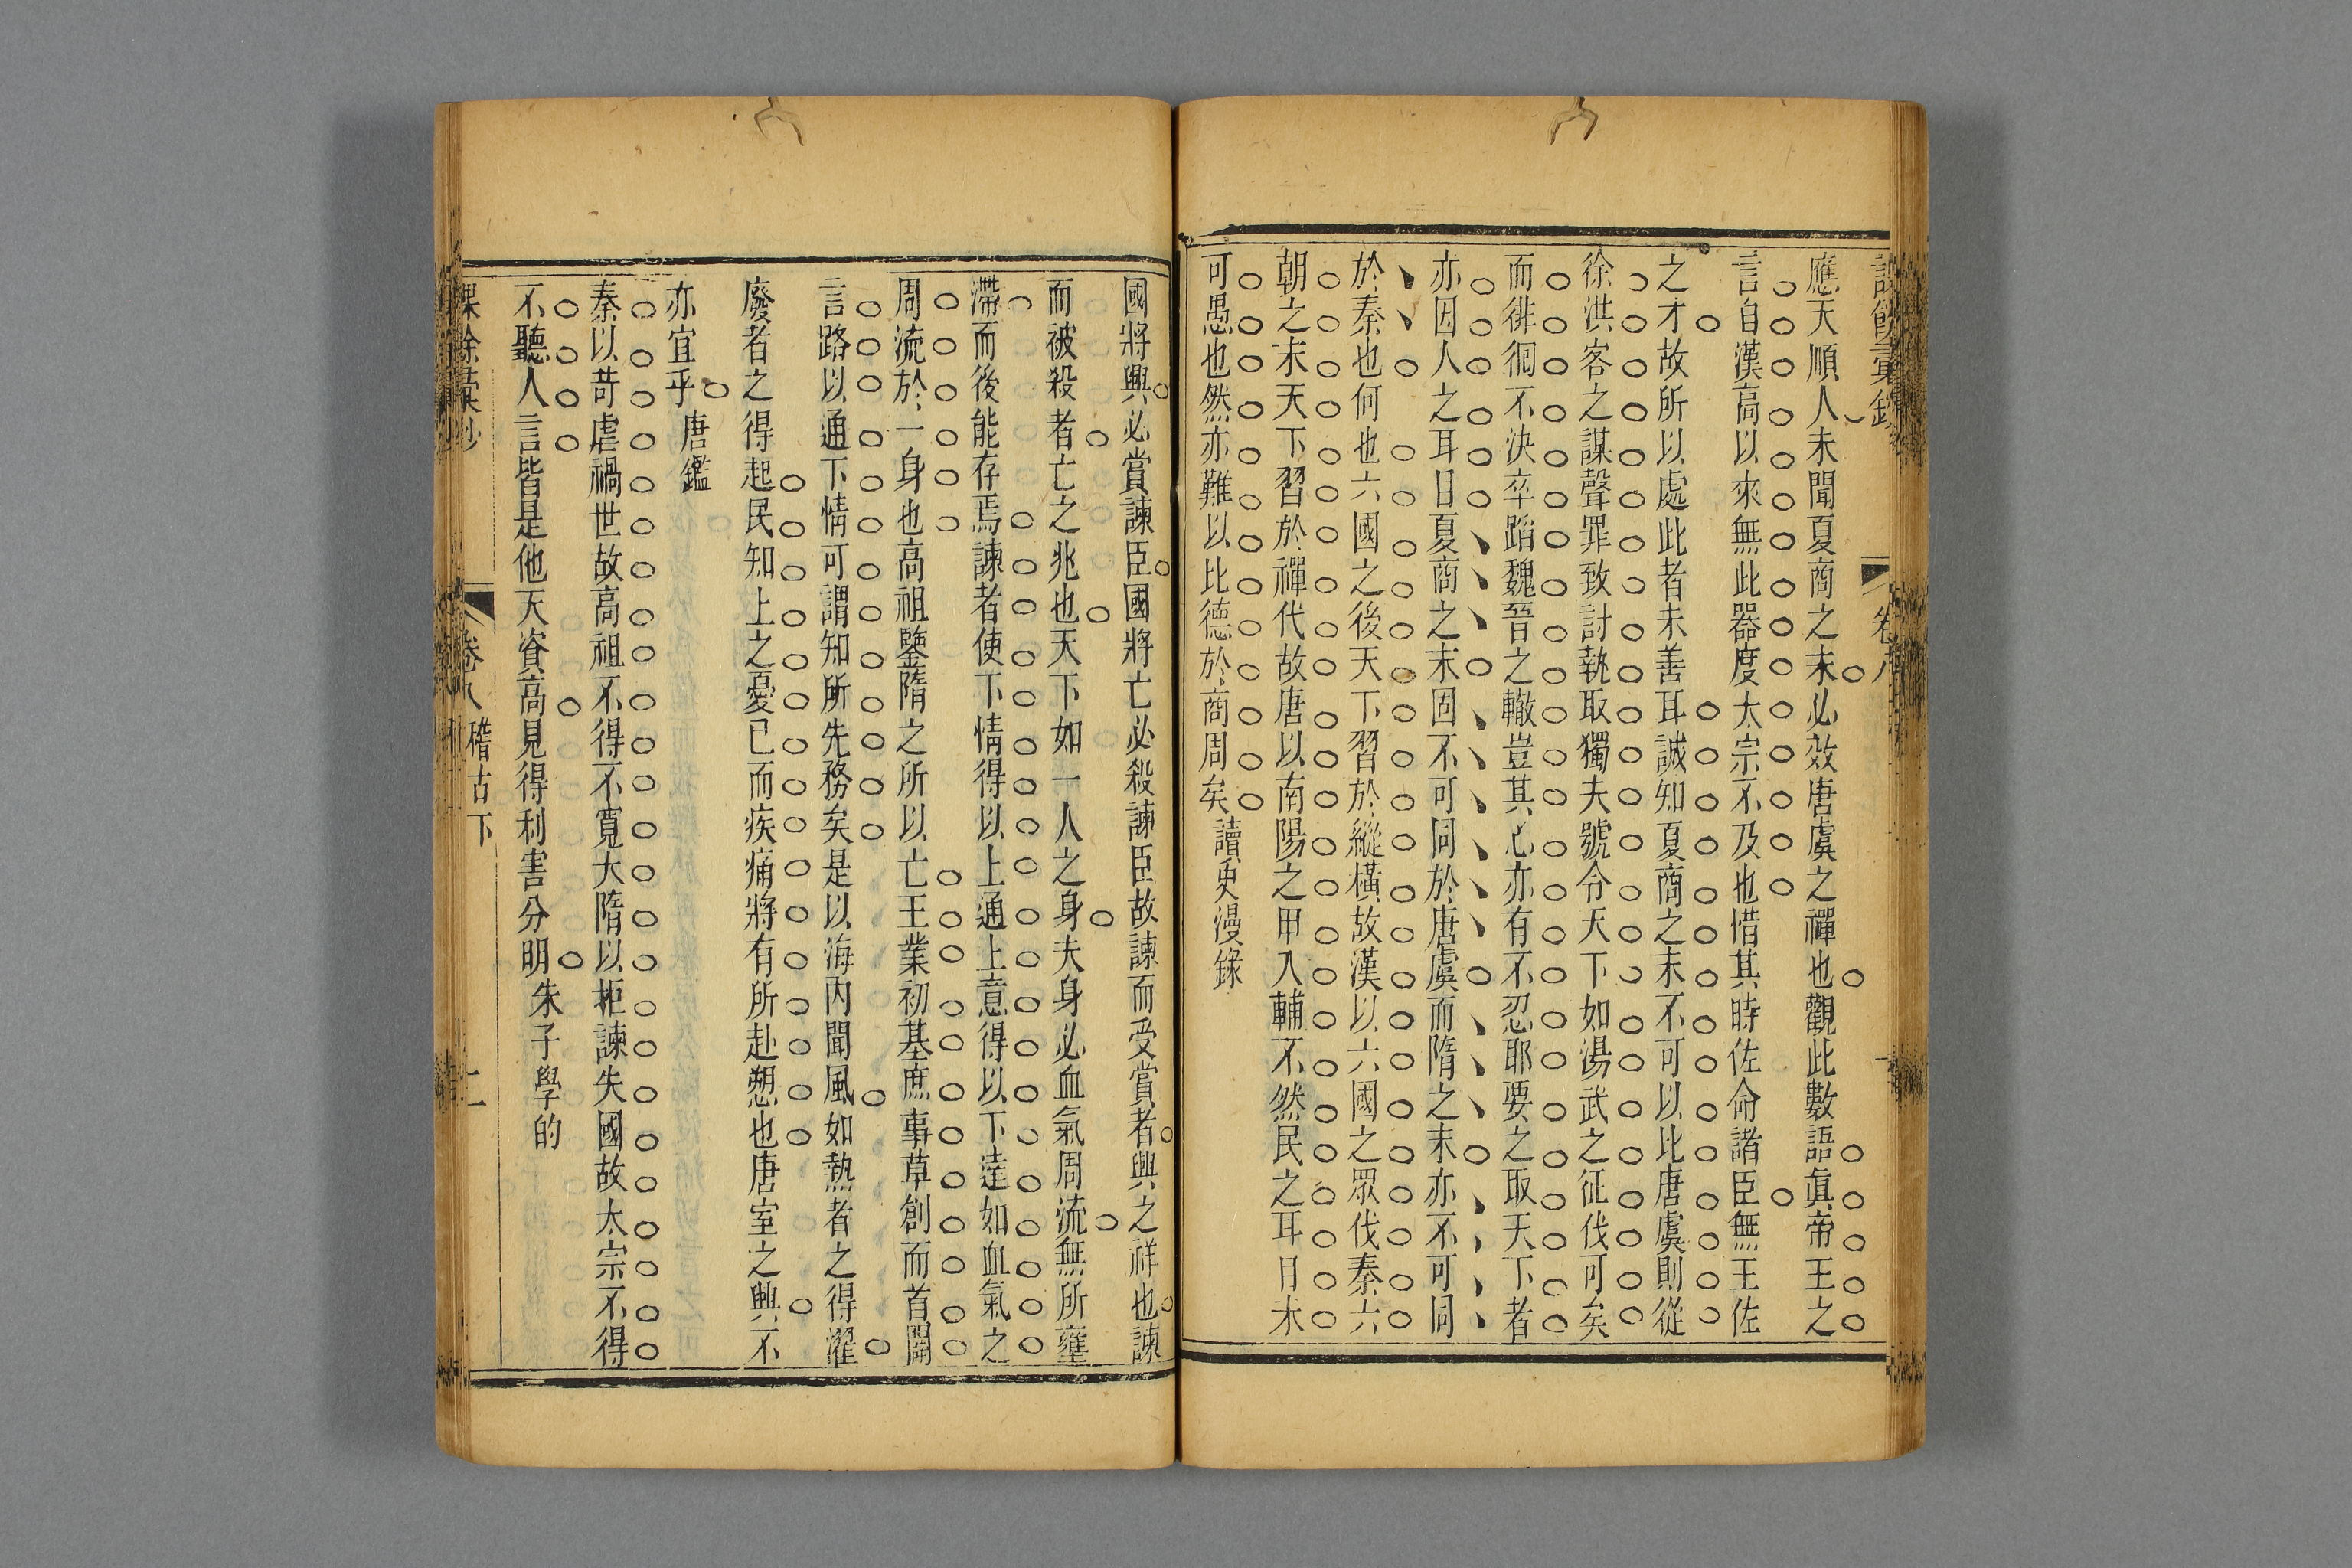 卷八
應天順人未聞夏商之末必效唐虞之禪也觀此數語眞帝王之
言自漢高以來無此器度太宗不及也惜其時佐命諸臣無王佐
之才故所以處此者未善耳誠知夏商之末不可以比唐虞則從
徐洪客之謀聲罪致討執取獨夫號令天下如湯武之征伐可矣
而徘徊不決卒蹈魏晉之轍豈其心亦有不忍耶要之取天下者
亦因人之耳目夏商之末固不可同於唐虞而隋之末亦不可同
於秦也何也六國之後天下習於縱橫故漢以六國之眾伐秦六
朝之末天下習於禪代故唐以南陽之甲入輔不然民之耳目未
可愚也然亦難以比德於商周矣 讀史漫錄
國將興必賞諫臣國將亡必殺諫臣故諫而受賞者興之祥也諫
而被殺者亡之兆也天下如一人之身夫身必血氣周流無所壅
滯而後能存焉諫者使下情得以上通上意得以下達如血氣之
周流於一身也高祖鑒隋之所以亡王業初基庶事草創而首開
言路以通下情可謂知所先務矣是以海內聞風如熱者之得濯
廢者之得起民知上之憂已而疾痛將有所赴愬也唐室之興不
亦宜乎 唐鑑
秦以苛虐禍世故高祖不得不寬大隋以拒諫失國故太宗不得
不聽人言皆是他天資高見得利害分明 朱子學的
課餘彙鈔 卷八 稽古下 二